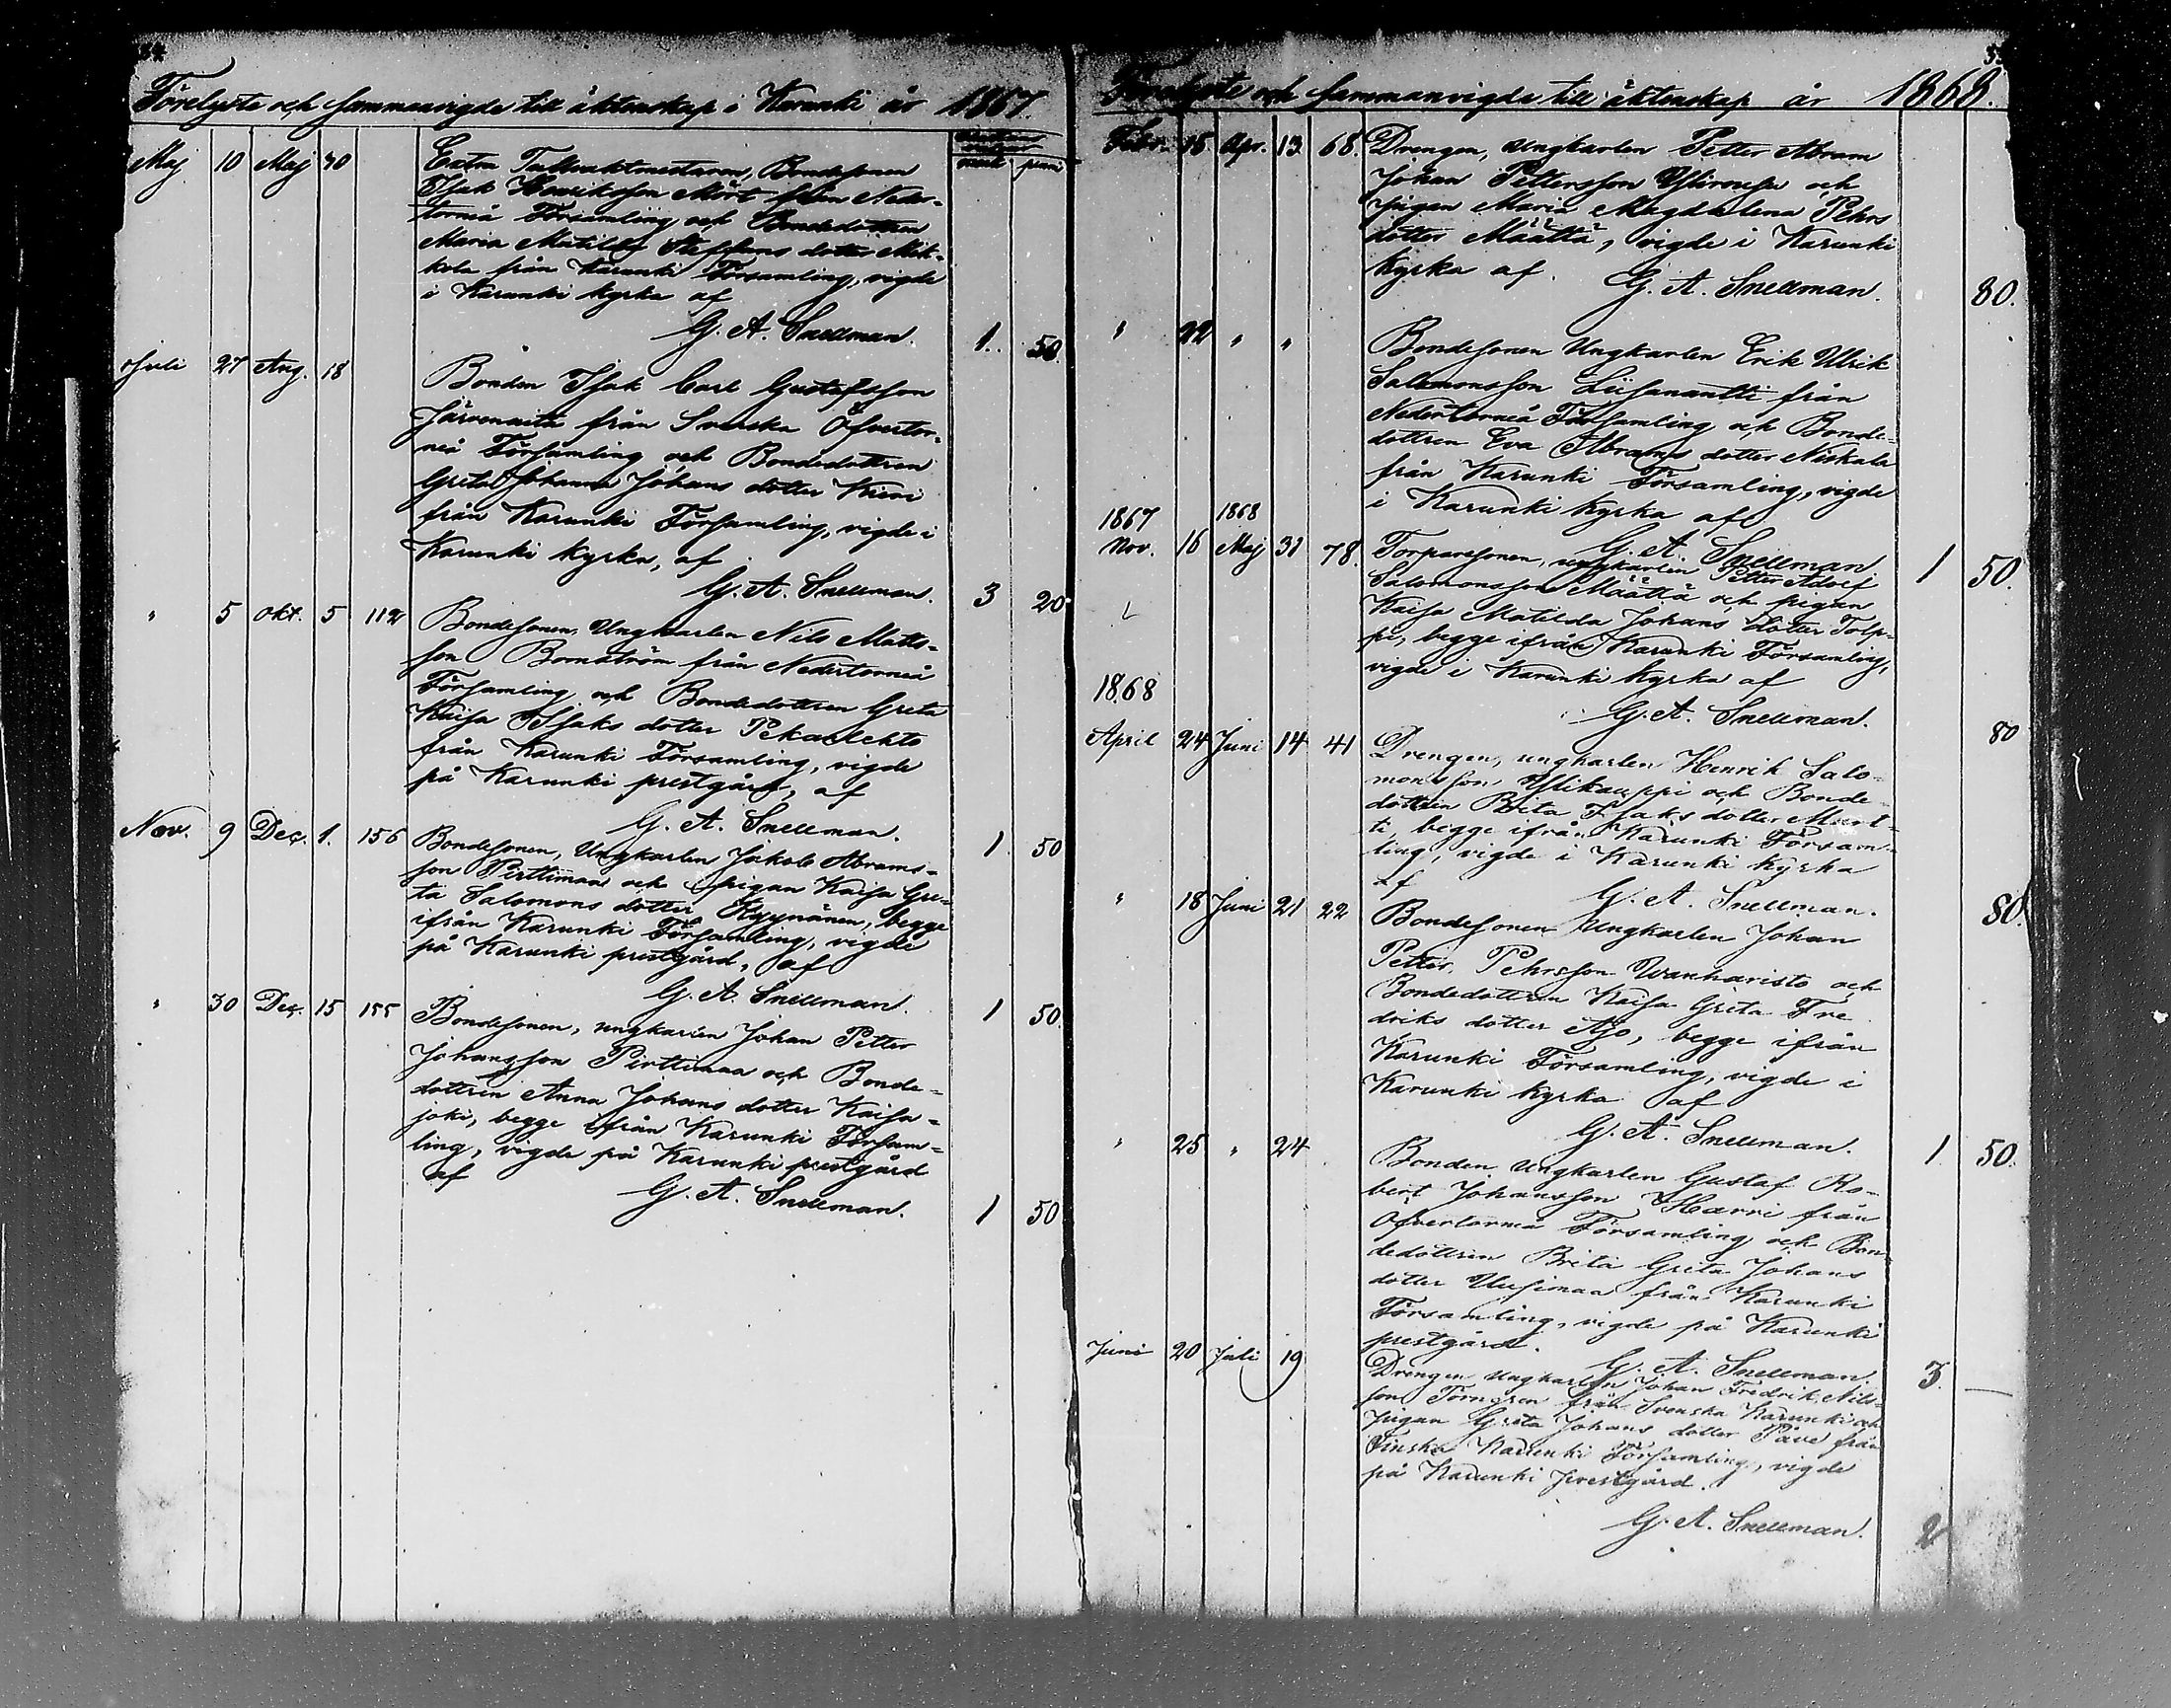 34
Förelyste och sammanvigde till äktenskap i Karunki år 1867.
mark penni
Maj 10 Maj 30
Extra Tullvaktmestaren, Bondesonen
Isak Henriksson Mört från Neder-
torneå Församling och Bondedottren
Maria Matilda Steffans dotter Mik-
kola från Karunki Församling, vigde
i Karunki kyrka af
G. A. Snellman. 1. 50
Juli 27 Aug. 18
Bonden Isak Carl Gustafsson
Järvenaita från Svenska Öfvertor-
neå Församling och Bondedottren
Greta Johanna Johans dotter Kieri
från Karunki Församling, vigde i
Karunki kyrka, af
G. A. Snellman. 3 20
" 5 Okt. 5 112
Bondesonen, Ungkarlen Nils Matts-
son Bomström från Nedertorneå
Församling och Bondedottren Greta
Kaisa Isaks dotter Pekanlehto
från Karunki Församling, vigde
på Karunki prestgård, af
G. A. Snellman. 1 50
Nov. 9 Dec. 1. 156
Bondesonen, Ungkarlen Jakob Abrams-
son Pirttimaa och pigan Kaisa Gre-
ta Salomons dotter Kyynänen, begge
ifrån Karunki Församling, vigde
på Karunki prestgård, af
G. A. Snellman. 1 50
" 30 Dec. 15 155
Bondesonen, ungkarlen Johan Petter
Johansson Pirttimaa och Bonde-
dottren Anna Johans dotter Kaisa-
joki, begge ifrån Karunki Försam-
ling, vigde på Karunki prestgård
af
G. A. Snellman. 1 50
Förelyste och sammanvigde till äktenskap år 1868.
Febr. 15 Apr. 13 68.
Drengen, ungkarlen Petter Abram
Johan Pettersson Yliroupe och
pigan Maria Magdalena Pehrs
dotter Määttä, vigde i Karunki
kyrka af.
G. A. Snellman. 80.
" 22 " "
Bondesonen Ungkarlen Erik Ulrik
Salomonsson Liisanantti från
Nedertorneå Församling och Bonde-
dottren Eva Abrams dotter Niskala
från Karunki Församling, vigde
i Karunki kyrka af
G. A. Snellman 1 50.
1867 1868
Nov. 16 Maj 31 78.
Torparesonen, ungkarlen Petter Adolf
Salomonsson Määttä och pigan
Kaisa Matilda Johans dotter Tolp-
pi, begge ifrån Karunki Församling,
vigde i Karunki kyrka af
G. A. Snellman. 80
1868
April 24 Juni 14 41
Drengen, ungkarlen Henrik Salo-
monsson Ylikauppi och Bonde-
dottren Brita Isaks dotter Murt-
ti, begge ifrån Karunki Försam-
ling, vigde i Karunki kyrka
af
G. A. Snellman. 80.
" 18 Juni 21 22
Bondesonen Ungkarlen Johan
Petter Pehrsson Wanharisto och
Bondedottren Kaisa Greta Fre
driks dotter Ajo, begge ifrån
Karunki Församling, vigde i
Karunki kyrka af
G. A. Snellman. 1 50.
" 25 " 24
Bonden, ungkarlen Gustaf Ro-
bert Johansson Harri från
Öfvertorneå Församling och Bon-
dedottren Brita Greta Johans
dotter Uusimaa från Karunki
Församling, vigde på Karunki
prestgård.
G. A. Snellman 3. —
Juni 20 Juli 19
Drengen ungkarlen Johan Fredrik Nils-
son Törngren från Svenska Karunki och
pigan Greta Johans dotter Pave från
Finska Karunki Församling, vigde
på Karunki prestgård.
G. A. Snellman. 2